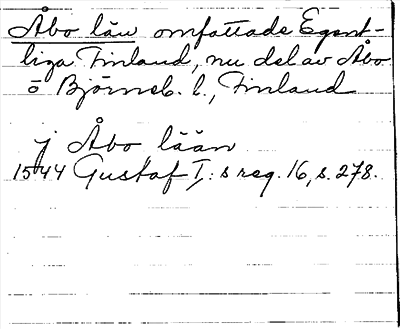 Åbo län omfattade Egent-
liga Finland, nu del av Åbo
o Björneb. l., Finland
j Åbo lään
1544 Gustaf I:s reg. 16, s. 278.